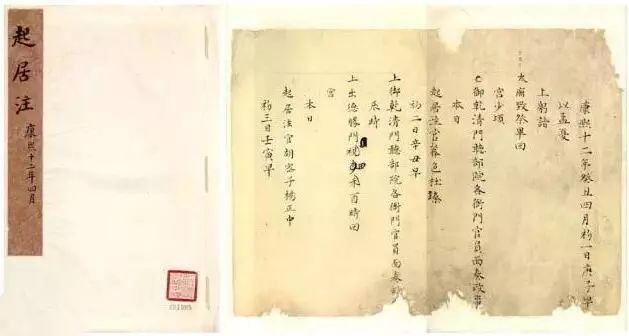 起居注
康熙十二年四月
康熙十二年癸丑四月初一日庚子早
以孟夏
上躬詣
太廟致祭畢回
宮少頃
上御乾清門聽部院各衙門官員面奏政事
本日
起居注官色杜臻
初二日辛丑早
上御乾清門聽部院各衙門官員面奏
辰時
上出德勝門禾酉時回
宮
本日
起居注官胡密子楊正中
初三日壬寅早